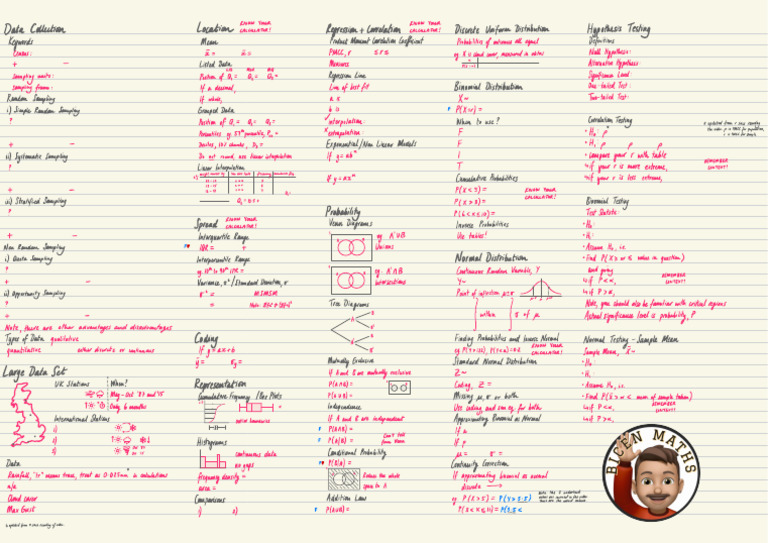 Data Collection
Keywords
Census:
+ -
Sampling units:
Sampling frame:
Random Sampling
i) Simple Random Sampling
?
+ -
ii) Systematic Sampling
?
+ -
iii) Stratified Sampling
?
+ -
Non Random Sampling
i) Quota Sampling
?
+ -
ii) Opportunity Sampling
?
+ -
Note, there are other advantages and disadvantages
Types of Data qualitative
quantitative either discrete or continuous
Large Data Set
UK Stations
When?
May-Oct '87 and '15
Only 6 months
International Stations
1)
2)
3)
Data
Rainfall, "tr" means trace, treat as 0.025mm in calculations
n/a
Cloud cover
Max Gust
Location
KNOW YOUR CALCULATOR!
Mean
x̄ = x̄ =
Listed Data
Position of Q₁ = Q₂ = Q₃ =
If a decimal,
If whole,
Grouped Data
Position of Q₁ = Q₂ = Q₃ =
Percentiles eg 57th percentile, P₅₇ =
Deciles, 10% chunks, D₆ =
Do not round, use linear interpolation
Linear Interpolation
Spread
KNOW YOUR CALCULATOR!
Interquartile Range
IQR =
Interpercentile Range
eg 10th to 90th IPR =
Variance, σ² / Standard Deviation, σ
σ² = MSMSM
Coding
If y = ax+b
ȳ = σy =
Representation
Cumulative Frequency / Box Plots
Histograms
continuous data
no gaps
frequency density =
area =
Comparisons
1) 2)
Regression + Correlation
KNOW YOUR CALCULATOR!
Product Moment Correlation Coefficient
PMCC, r ≤ r ≤
Measures
Regression Line
Line of best fit
a is
b is
✓ interpolation:
✗ extrapolation:
Exponential/Non Linear Models
If y = abˣ
If y = axⁿ
Probability
Venn Diagrams
eg A∪B
Unions
eg A∩B
Intersections
Tree Diagrams
Mutually Exclusive
If A and B are mutually exclusive
P(A∩B) =
P(A∪B) =
Independence
If A and B are independent
P(A∩B) =
P(A|B) =
Can't tell from Venn
Conditional Probability
P(B|A) =
Reduce the whole
space to A
Addition Law
P(A∪B) =
Discrete Uniform Distribution
Probabilities of outcomes all equal
Binomial Distribution
X~
P(X=r) =
When to use?
F
F
I
T
Cumulative Probabilities
P(X<3) =
P(X>8) =
P(6<X≤10) =
KNOW YOUR CALCULATOR!
Inverse Probabilities
Use tables!
Normal Distribution
Continuous Random Variable, Y
Y~
Point of inflection μ±σ
within σ of μ
Finding Probabilities and Inverse Normal
KNOW YOUR CALCULATOR!
Standard Normal Distribution
Z~
Coding, Z =
Missing μ, σ or both
Use coding and sim eq. for both
Approximating Binomial as Normal
If n
If p
μ = σ =
Continuity Correction
If approximating binomial as normal
discrete →
eg P(X>5) = P(Y>5.5)
P(2<X≤10) = P(2.5<
Hypothesis Testing
Definitions
Null Hypothesis:
Alternative Hypothesis:
Significance Level:
One-tailed Test:
Two-tailed Test:
Correlation Testing
• H₀: ρ
• H₁: ρ ρ ρ
• Compare your r with table
↳ if your r is more extreme,
↳ if your r is less extreme,
REMEMBER CONTEXT!
Binomial Testing
Test Statistic:
• H₀:
• H₁:
• Assume H₀, i.e.
• Find P(X> or ≤ value in question)
and going
↳ if P<α,
↳ if P>α,
REMEMBER CONTEXT!
Note, you should also be familiar with critical regions
Actual significance level is probability, P
Normal Testing - Sample Mean
Sample Mean, X̄~
• H₀:
• H₁:
• Assume H₀, i.e.
• Find P(X̄> or < mean of sample taken)
↳ if P<α,
↳ if P>α,
REMEMBER CONTEXT!
BICEN MATHS